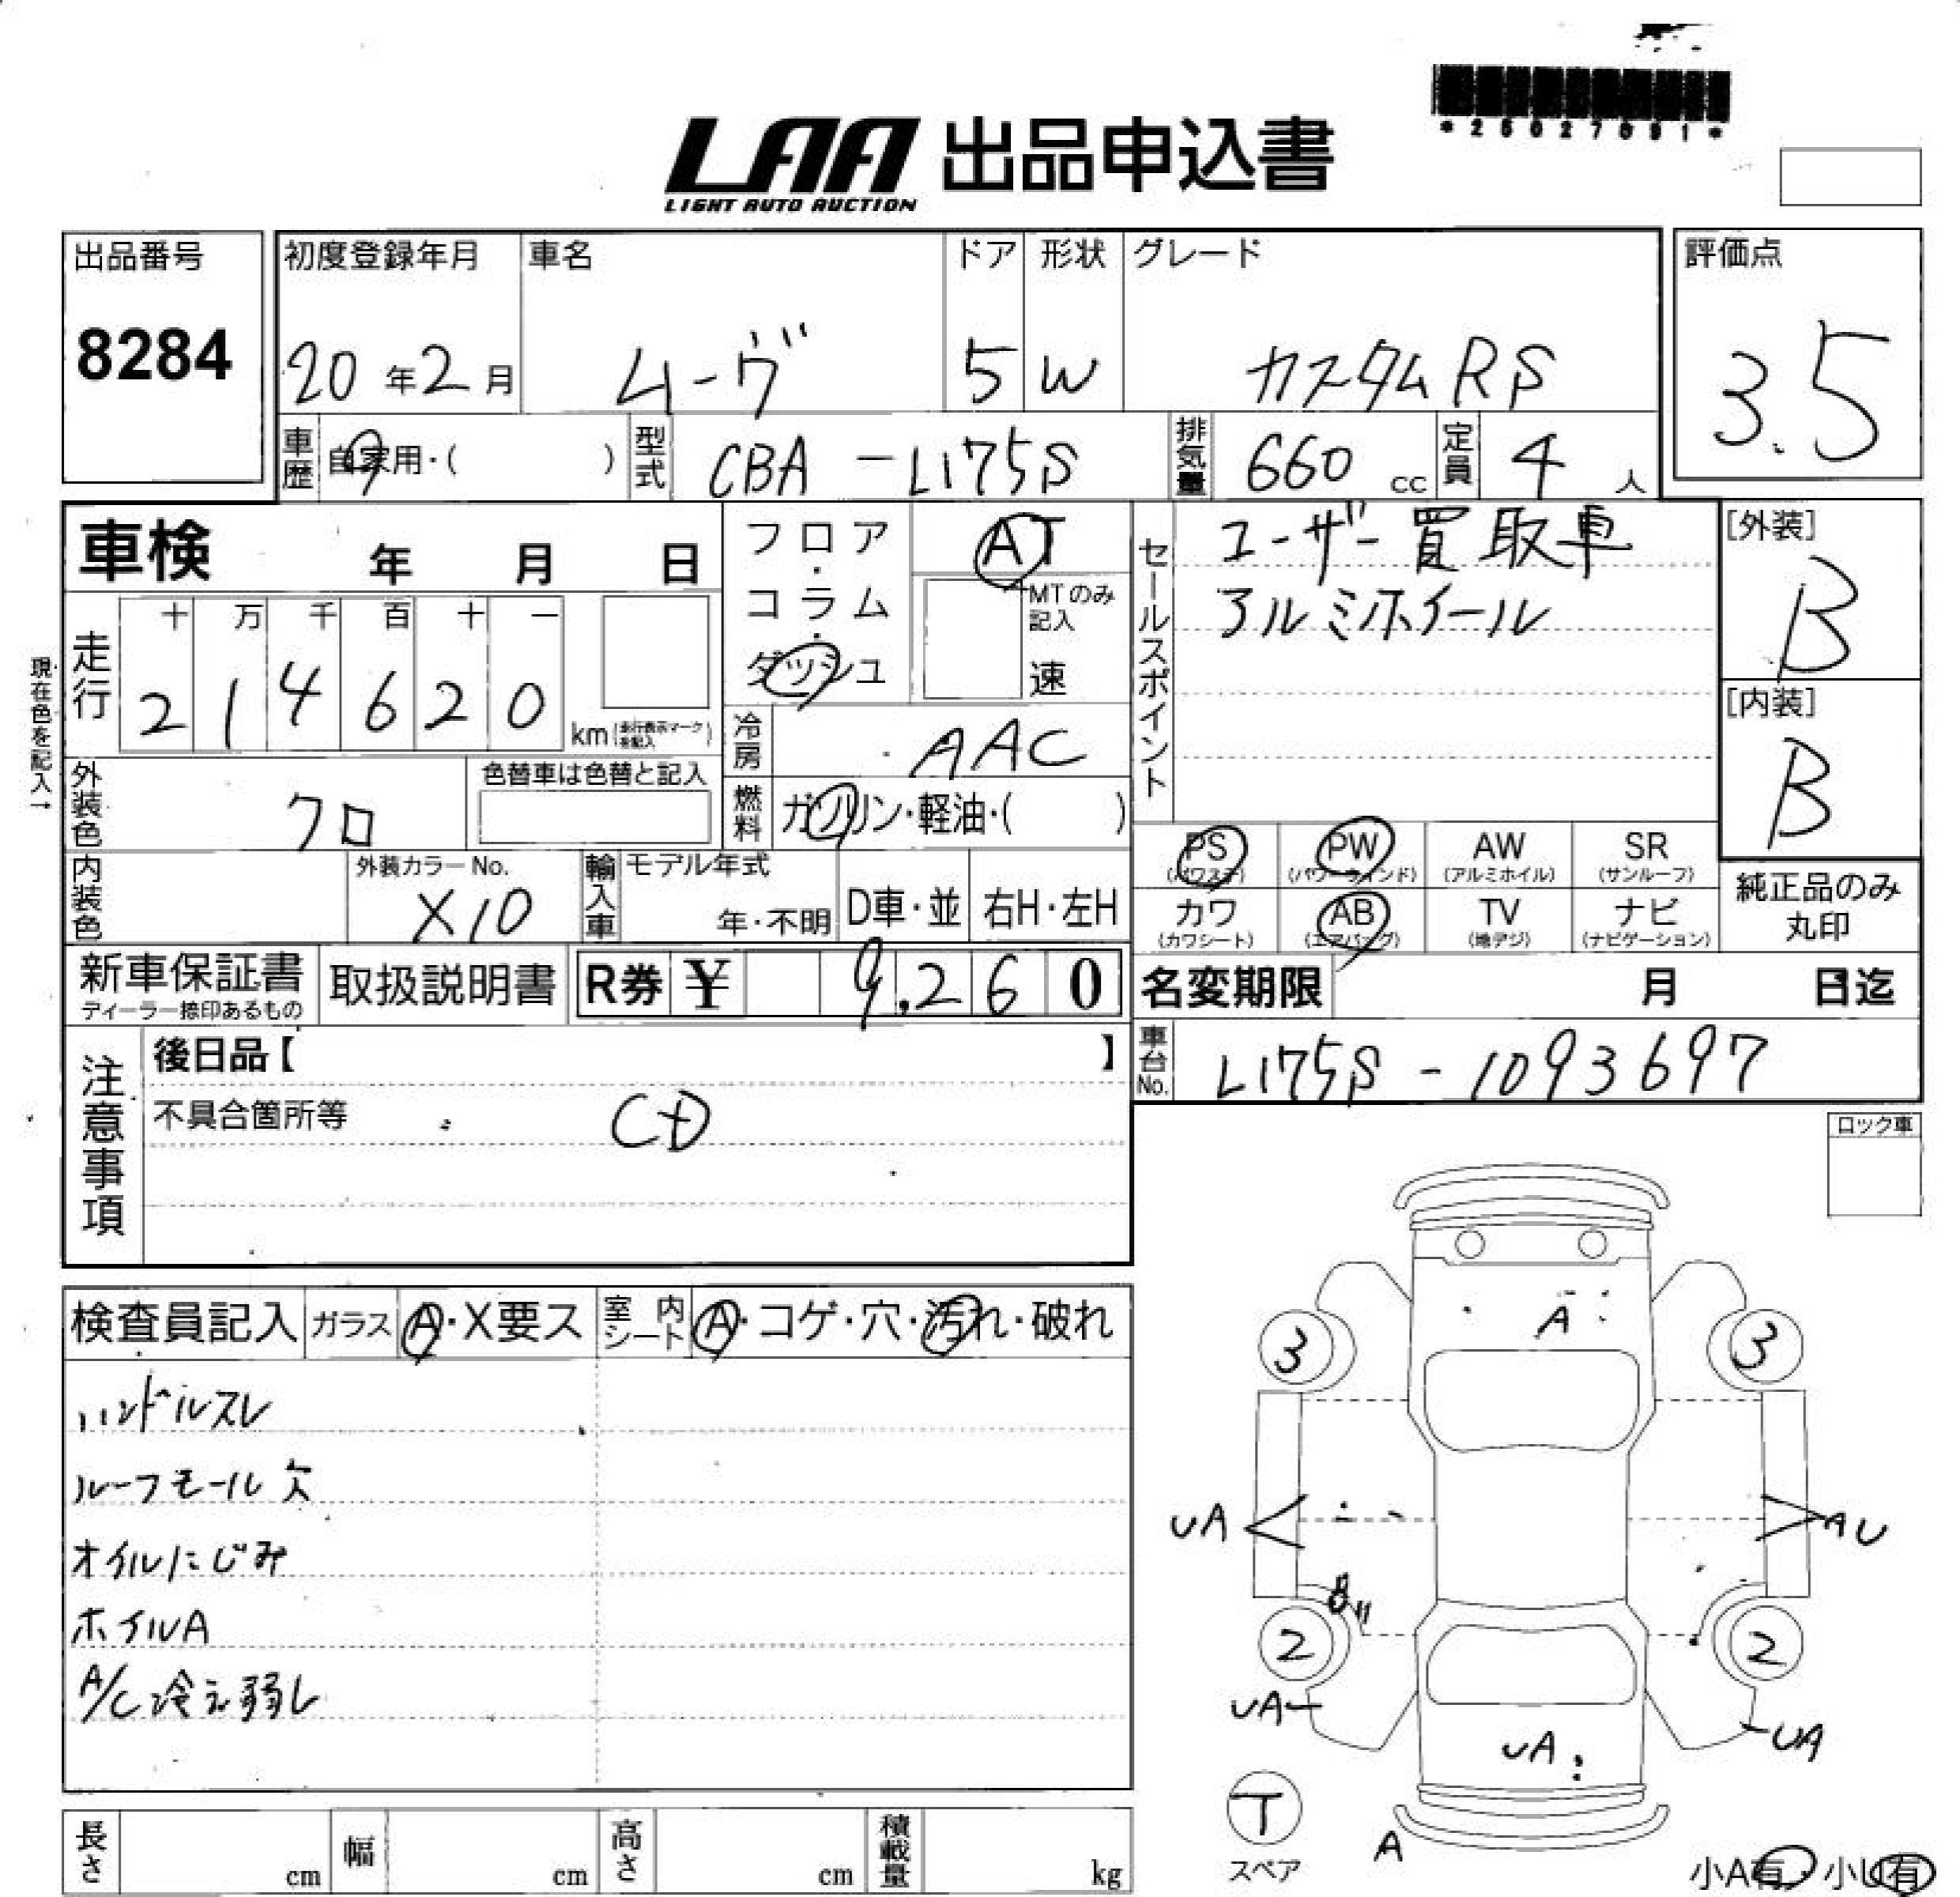 LAA 出品申込書
LIGHT AUTO AUCTION
出品番号
8284
初度登録年月
20年2月
車名
ムーヴ
ドア
5
形状
W
グレード
カスタムRS
評価点
3.5
車歴
自家用・( )
型式
CBA-L175S
排気量
660 cc
定員
4人
車検 年 月 日
フロア・コラム・ダッシュ
AT
MTのみ記入
速
セールスポイント
ユーザー買取車
アルミホイール
[外装]
B
[内装]
B
現在色を記入→
走行
十 万 千 百 十 一
2 1 4 6 2 0
km (走行表示マークを記入)
冷房
AAC
外装色
クロ
色替車は色替と記入
燃料
ガソリン・軽油・( )
PS (パワステ)
PW (パワーウィンド)
AW (アルミホイル)
SR (サンルーフ)
カワ (カワシート)
AB (エアバッグ)
TV (地デジ)
ナビ (ナビゲーション)
純正品のみ
丸印
内装色
外装カラーNo.
X10
輸入車
モデル年式
年・不明
D車・並
右H・左H
新車保証書
ディーラー捺印あるもの
取扱説明書
R券 ¥ 9,260
名変期限 月 日迄
注意事項
後日品【 】
不具合箇所等
CD
車台No.
L175S-1093697
ロック車
検査員記入
ガラス
A・X要ス
室内シート
A・コゲ・穴・汚れ・破れ
ハンドルスレ
ルーフモール欠
オイルにじみ
ホイルA
A/C冷え弱し
A
3
3
UA
AU
2
2
UA
UA
UA
T
スペア
A
小A有・小U有
長さ cm
幅 cm
高さ cm
積載量 kg